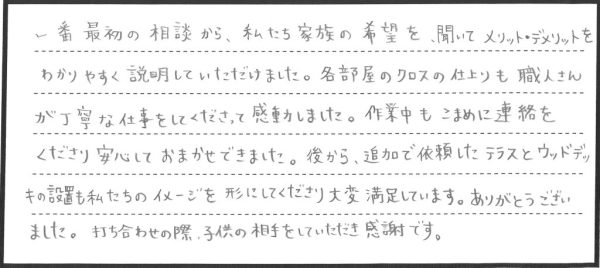 一番最初の相談から、私たち家族の希望を、聞いてメリット・デメリットを
わかりやすく説明していただけました。各部屋のクロスの仕上りも職人さん
が丁寧な仕事をしてくださって感動しました。作業中もこまめに連絡を
くださり安心しておまかせできました。後から、追加で依頼したテラスとウッドデッ
キの設置も私たちのイメージを形にしてくださり大変満足しています。ありがとうござい
ました。打ち合わせの際、子供の相手をしていただき感謝です。